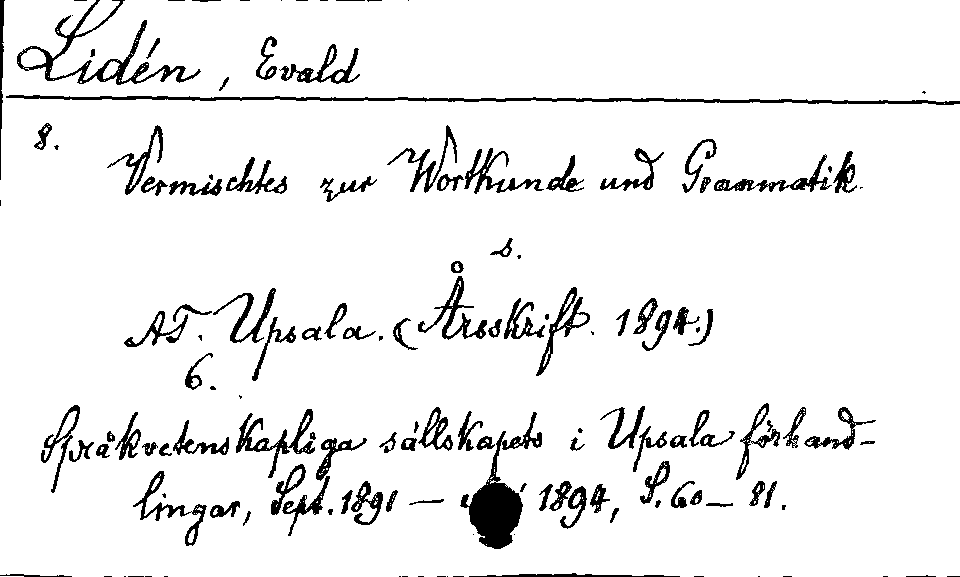 Lidén, Evald
8.
Vermischtes zur Wortkunde und Grammatik
s.
AT. Upsala. (Årsskrift. 1894.)
6.
Språkvetenskapliga sällskapets i Upsala förhand-
lingar, Sept. 1891 — 1894, S. 60–81.